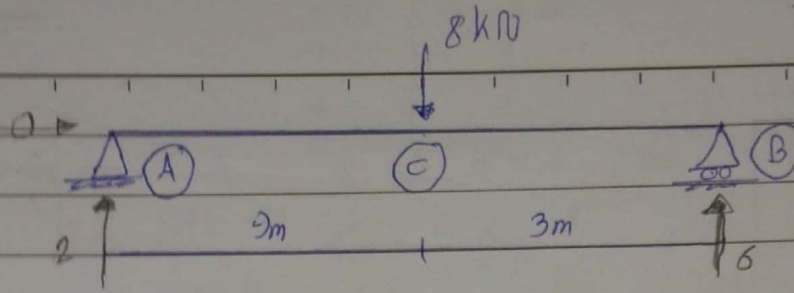 8kN
0
A C B
9m 3m
2 6